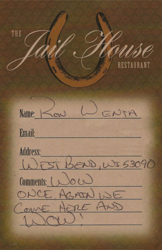 THE
Jail House
RESTAURANT
Name: RON WENTA
Email:
Address:
WEST BEND, WI 53090
Comments: WOW
ONCE AGAIN WE
COME HERE AND
WOW!